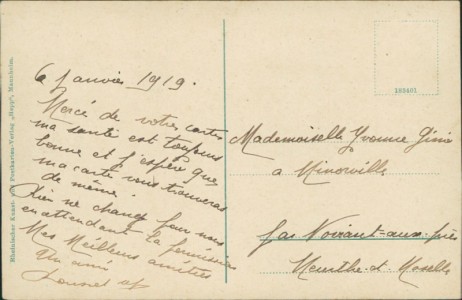 6 Janvier 1919.
Mercé de votre cartes
ma santé est toujours
bonne et j'espère que
ma carte vous trouveras
de même.
Rien ne change pour nous
en attendant la
Mes Meilleurs amitiers
Un ami
Mademoiselle Yvonne
a Minorville
par Noviant-aux-prés
Meurthe-et-Moselle
163401
Rheinischer Kunst- und Postkarten-Verlag „Rapp“, Mannheim.